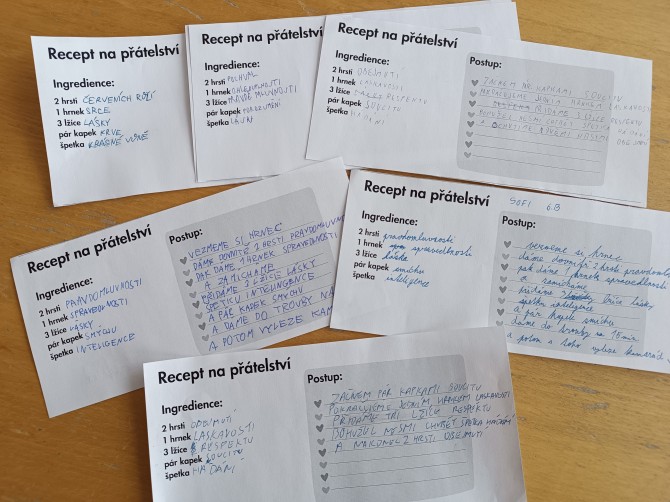 Recept na přátelství
Ingredience:
2 hrsti ČERVENÍCH RŮŽÍ
1 hrnek SRCE
3 lžíce LÁSKY
pár kapek KRVE
špetka KRÁSNÉ VŮNĚ
Recept na přátelství
Ingredience:
2 hrsti POCHVAL
1 hrnek OHLEDUPLNOSTI
3 lžíce PRAVDOMLUVNOSTI
pár kapek POROZUMĚNÍ
špetka
Recept na přátelství
Ingredience:
2 hrsti OBEJMUTÍ
1 hrnek LASKAVOSTI
3 lžíce RESPEKTU
pár kapek SOUCITU
špetka HÁDÁNÍ
Postup:
ZAČNEM PÁR KAPKAMI SOUCITU
POKRAČUJEME JEDNÍM HRNKEM LASKAVOSTI
PŘIDÁME 3 LŽÍCE RESPEKTU
NESMÍ CHYBĚT ŠPETKA HÁDÁNÍ
A 2 HRSTI OBEJMUTÍ
Recept na přátelství
Ingredience:
2 hrsti PRAVDOMLUVNOSTI
1 hrnek SPRAVEDLNOSTI
3 lžíce LÁSKY
pár kapek SMÝCHU
špetka INTELIGENCE
Postup:
VEZMEME SI HRNEC
DÁME DOVNITŘ 2 HRSTI PRAVDOMLUVNO
PAK DÁME 1 HRNEK SPRAVEDLNOSTI
A ZAMÍCHÁME
PŘIDÁME 3 LŽÍCE LÁSKY
ŠPETKU INTELINGENCE
A PÁR KAPEK SMYCHU
A DÁME DO TROUBY NA
A POTOM VYLEZE KAM
SOFI 6.B
Recept na přátelství
Ingredience:
2 hrsti pravdomluvnosti
1 hrnek spravedlnosti
3 lžíce lásky
pár kapek smíchu
špetka inteligence
Postup:
vezmeme si hrnec
dáme dovnitř 2 hrsti pravdomluvnos
pak dáme 1 hrnek spravedlnosti
a zamícháme
přidáme 3 lžíce lásky
špetku inteligence
a pár kapek smíchu
dáme do trouby na 15 min
a potom z toho vyleze kamarád
Recept na přátelství
Ingredience:
2 hrsti OBEJMUTÍ
1 hrnek LASKAVOSTI
3 lžíce RESPEKTU
pár kapek SOUCITU
špetka HÁDÁNÍ
Postup:
ZAČNEM PÁR KAPKAMI SOUCITU
POKRAČUJEME JEDNÍM HRNKEM LASKAVOSTI
PŘIDÁME TŘI LŽÍCE RESPEKTU
BOHUŽUL NESMÍ CHYBĚT ŠPETKA HÁDÁNÍ
A NAKONEC 2 HRSTI OBEJMUTÍ